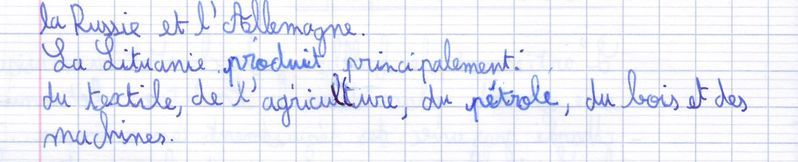 la Russie et l'Allemagne.
La Lituanie produit principalement :
du textile, de l'agriculture, du pétrole, du bois et des
machines.